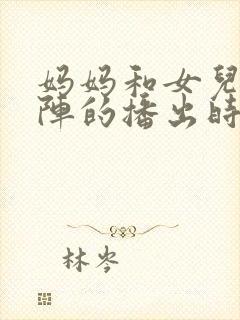 妈妈和女兒
陣的播出時
林岑